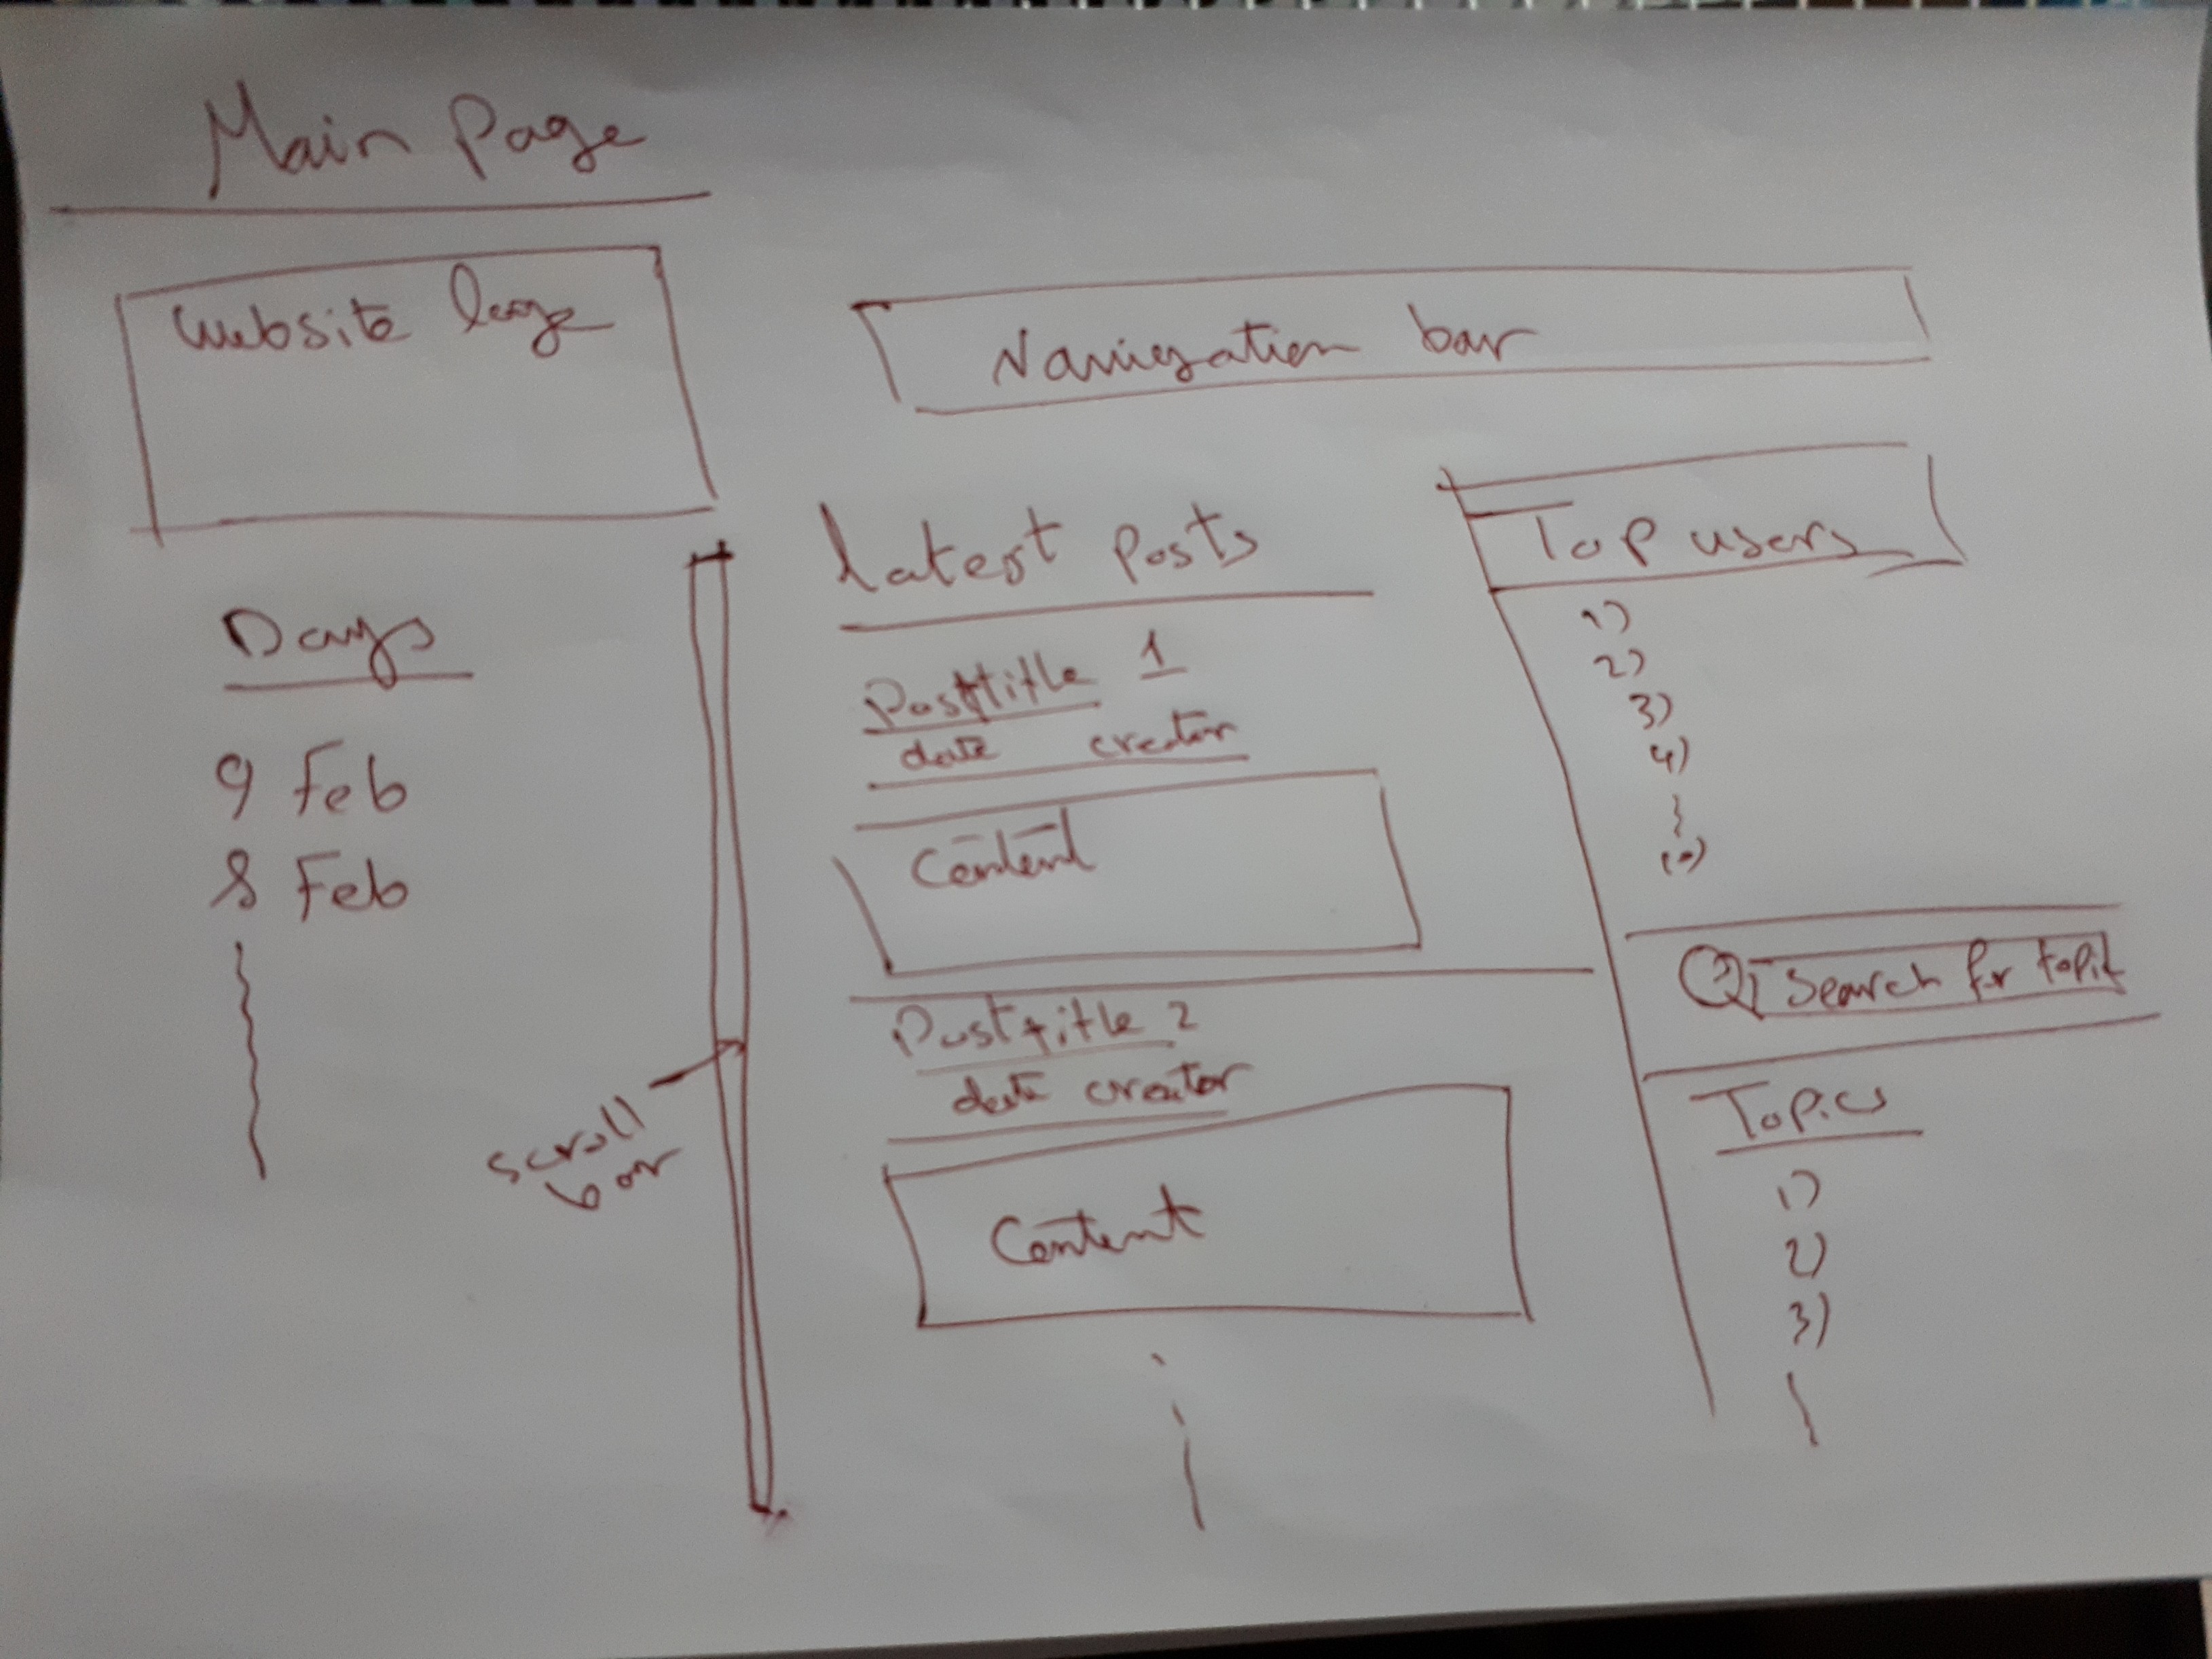 Main Page
Website logo
Navigation bar
Days
9 Feb
8 Feb
scroll
bar
Latest posts
Post title 1
date creator
Content
Post title 2
date creator
Content
Top users
1)
2)
3)
4)
10)
Search for topic
Topics
1)
2)
3)